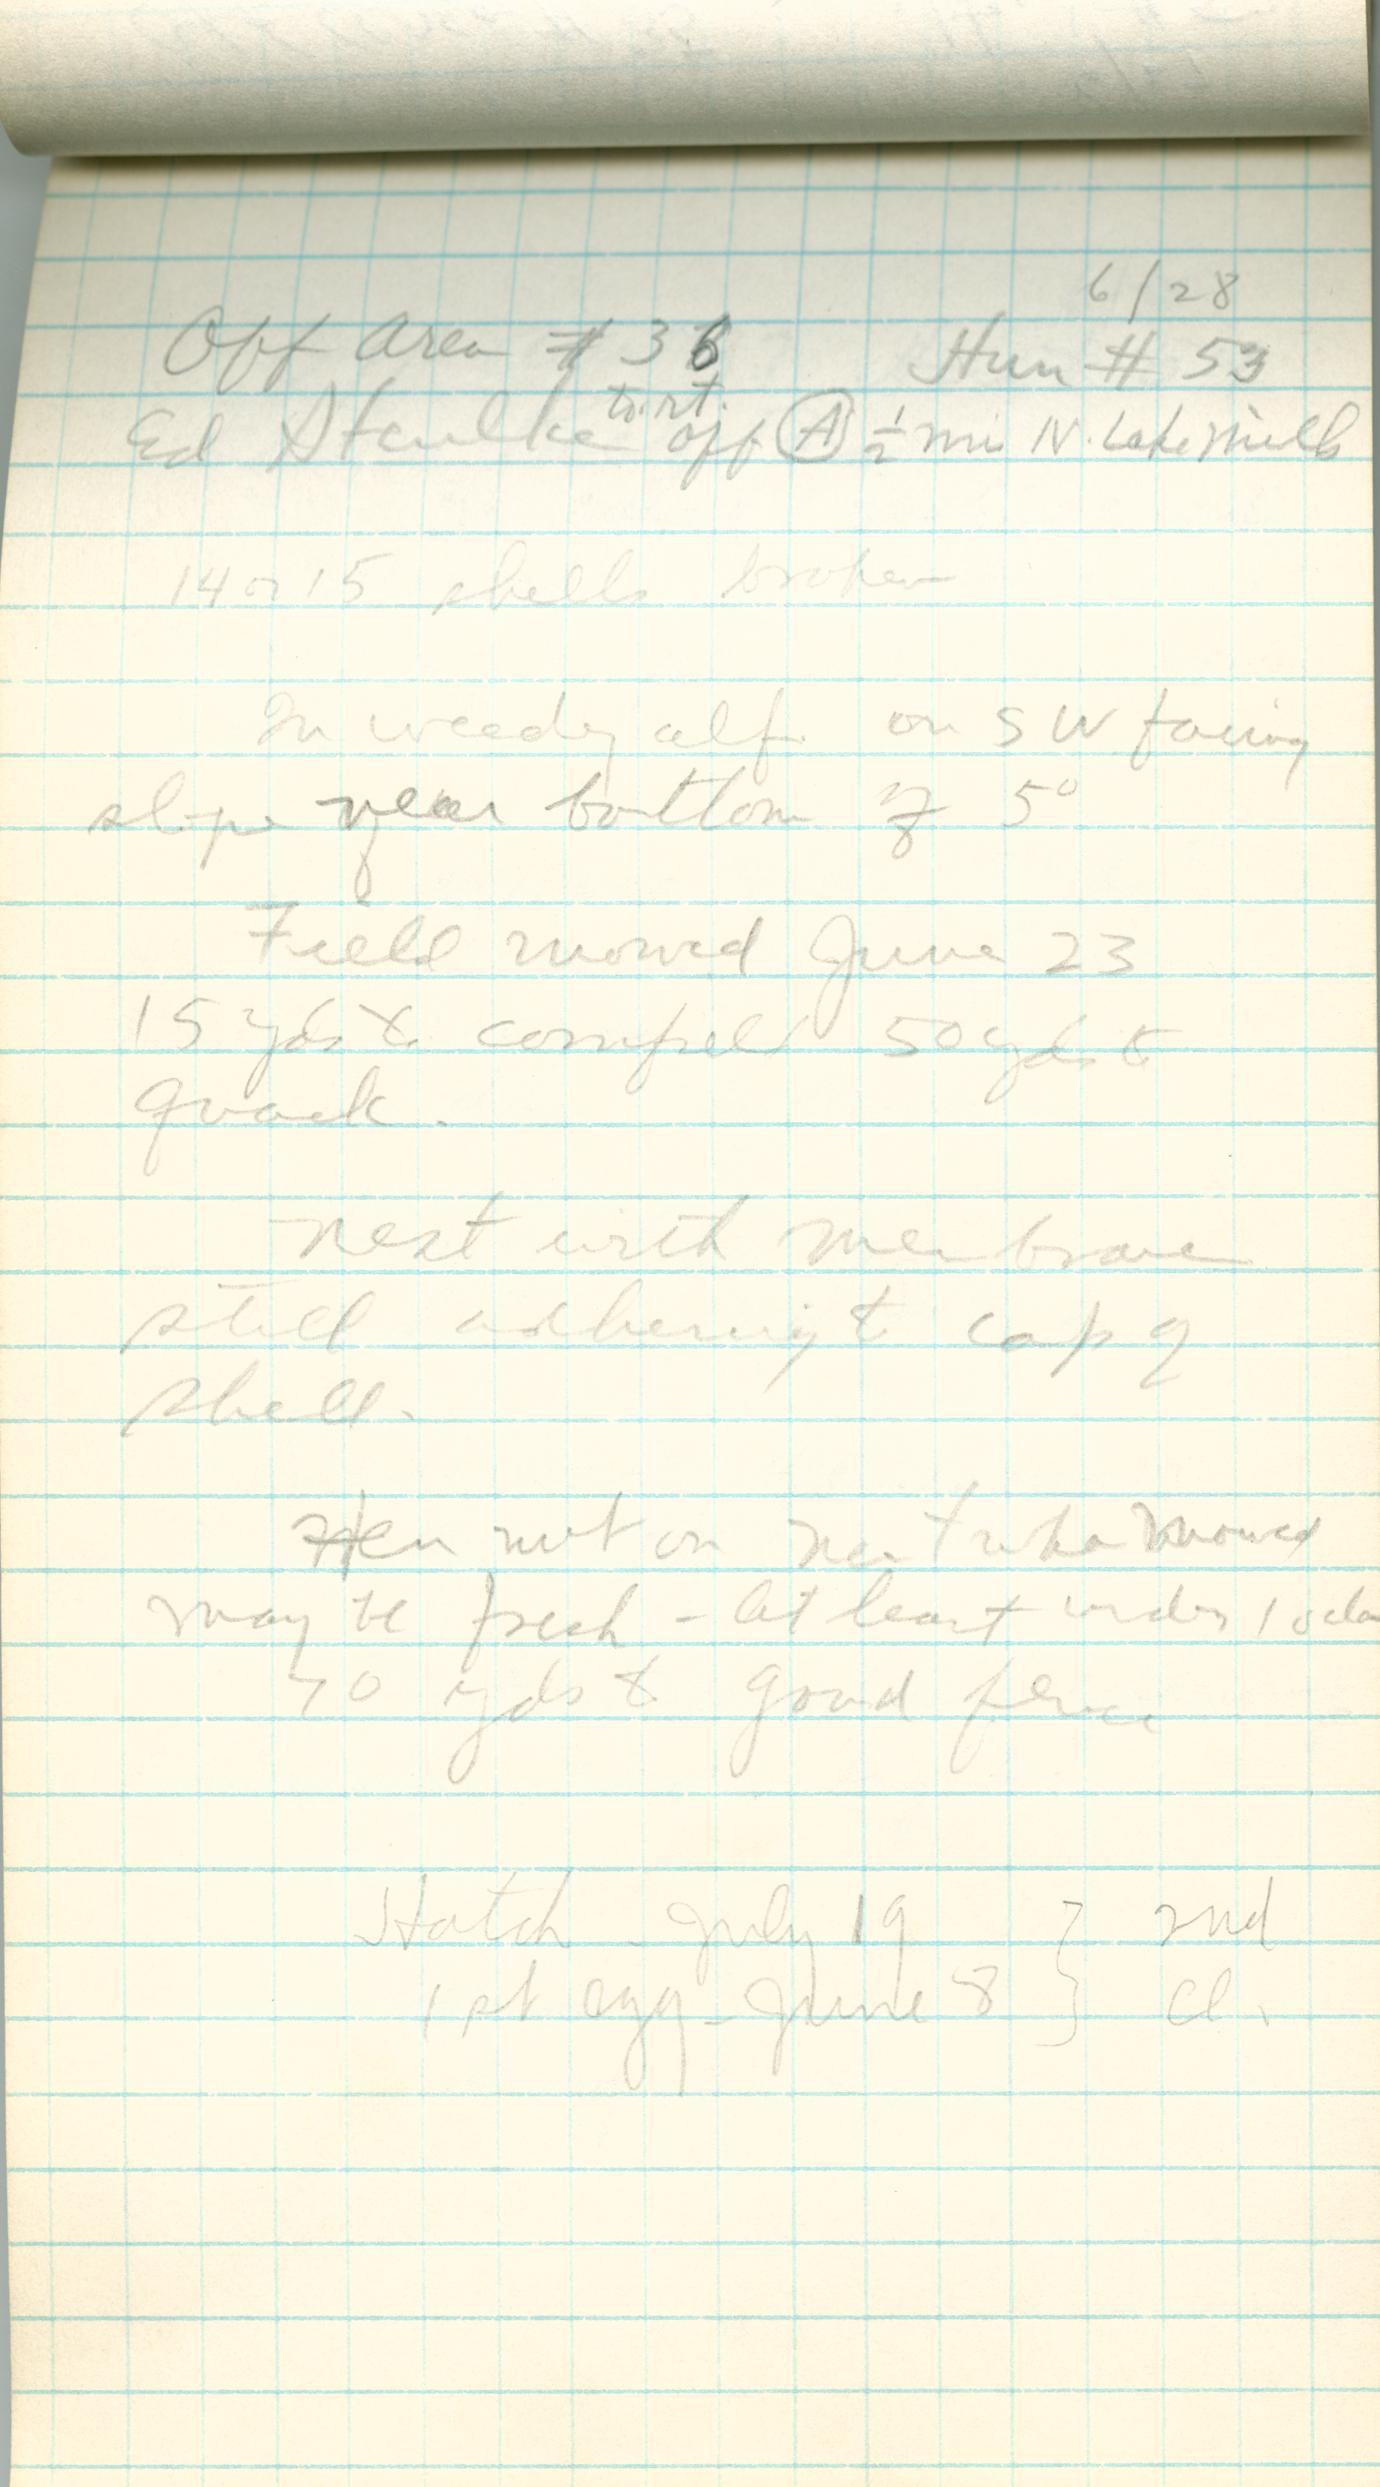 6/28
Off Area # 36 Hun # 53
to rt.
Ed Staulke off (A) 1/2 mi N. Lake Mills
14 or 15 shells broken
In weedy alf. on SW facing
slope near bottom of 5°
Field mowed June 23
15 yds to cornfield 50 yds to
quack.
Nest with membrane
still adhering to cap of
shell.
Hen not on nest when mowed
may be fresh - at least under 10 da
70 yds to good fence
Hatch - July 19 } 2nd
1st egg - June 8 } cl.